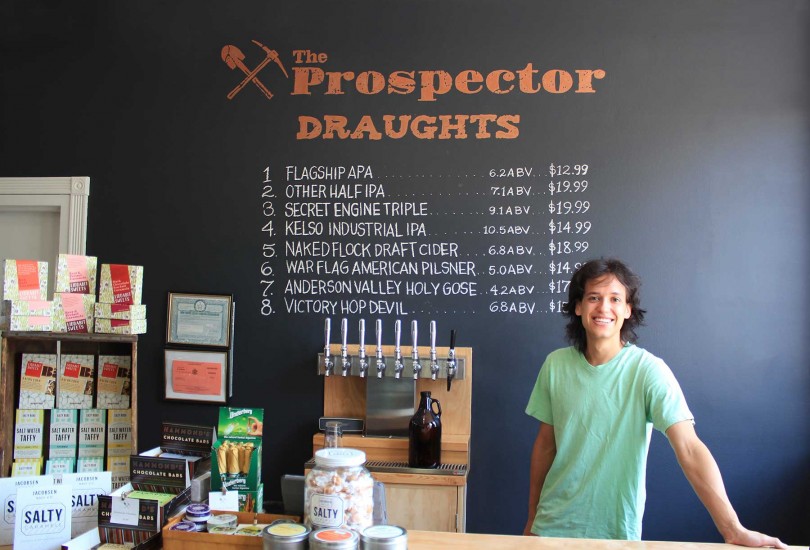 The
Prospector
DRAUGHTS
1 FLAGSHIP APA............6.2ABV...$12.99
2. OTHER HALF IPA............7.1ABV...$19.99
3. SECRET ENGINE TRIPLE.......9.1ABV...$19.99
4. KELSO INDUSTRIAL IPA.......10.5ABV...$14.99
5. NAKED FLOCK DRAFT CIDER....6.8ABV...$18.99
6. WAR FLAG AMERICAN PILSNER...5.0ABV...$14.
7. ANDERSON VALLEY HOLY GOSE..4.2ABV...$17
8. VICTORY HOP DEVIL............6.8ABV...$1
SALT WATER
TAFFY
SALT WATER
TAFFY
SALT WATER
TAFFY
HAMMOND'S
CHOCOLATE BARS
HAMMOND'S
CHOCOLATE BARS
CHOCOLATE BARS
JACOBSEN
SALTY
CARAMELS
SALTY